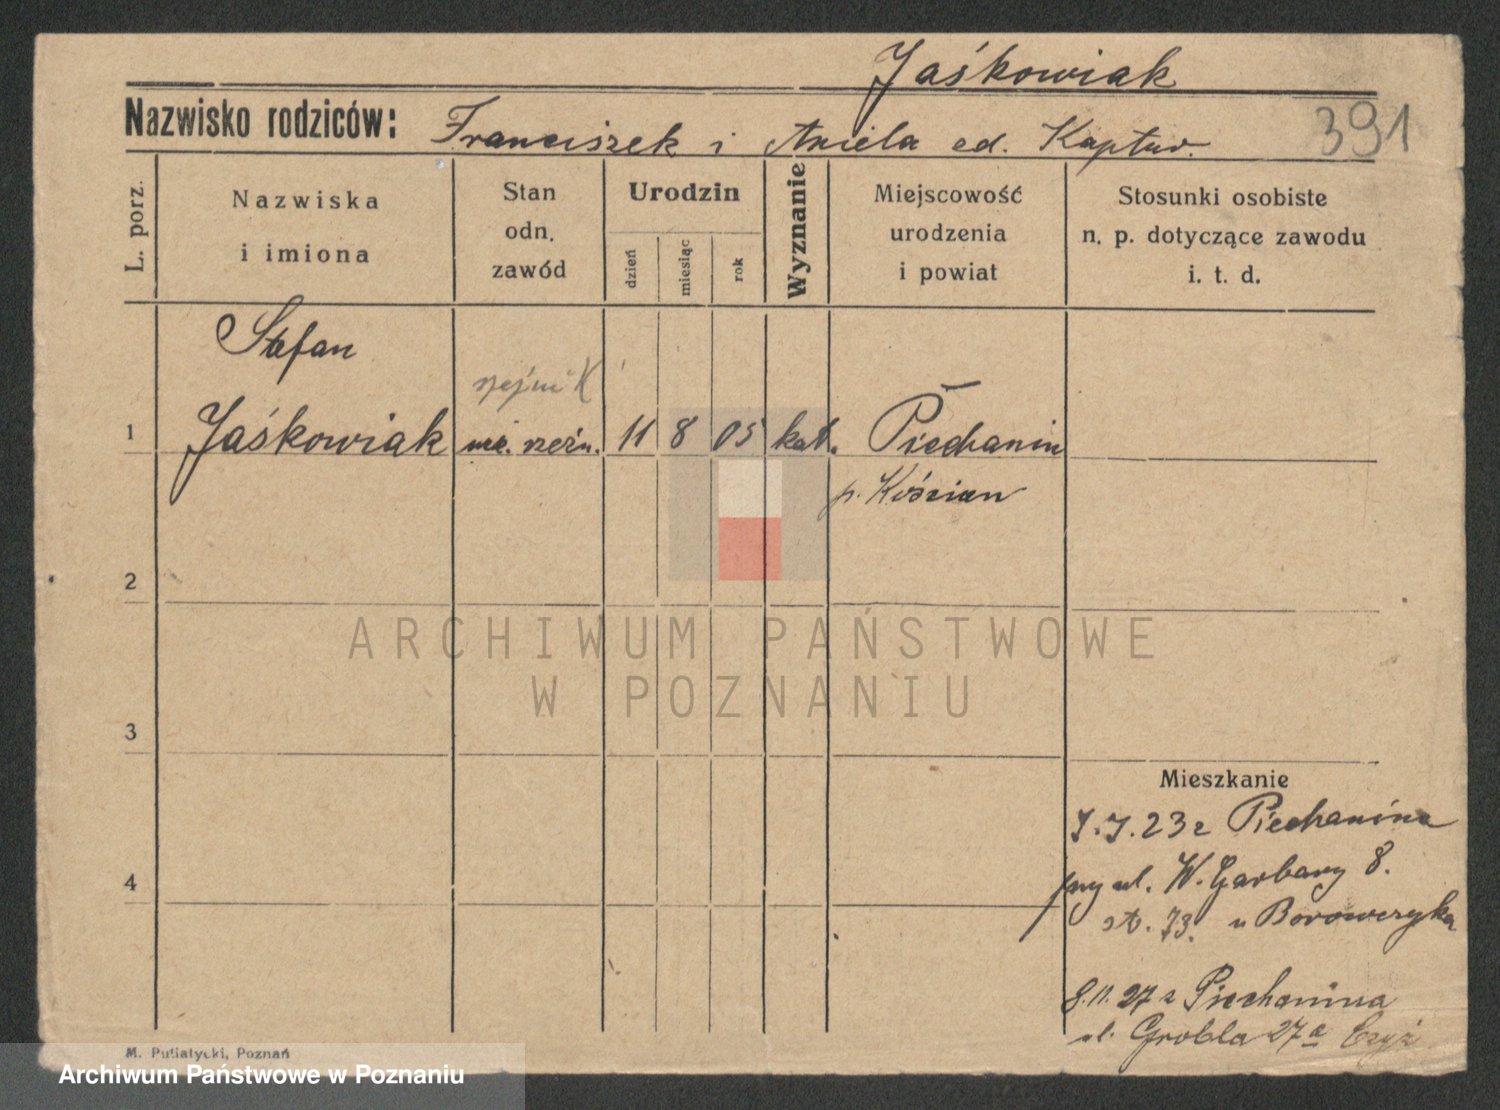 Jaśkowiak
Nazwisko rodziców: Franciszek i Aniela
391
L. porz.
Nazwiska
i imiona
Stan
odn.
zawód
Urodzin
dzień
miesiąc
rok
Wyznanie
Miejscowość
urodzenia
i powiat
Stosunki osobiste
n. p. dotyczące zawodu
i. t. d.
Stefan
1 Jaśkowiak rzeźn. 11 8 05 kat. Piechanin
p. Kościan
2
3
4
Mieszkanie
23 z Piechanina
przy ul. W. Garbary 8.
u Borowczyka
8.11.27 z Piechanina
ul. Grobla 27a
M. Putiatycki, Poznań
ARCHIWUM PAŃSTWOWE
W POZNANIU
Archiwum Państwowe w Poznaniu